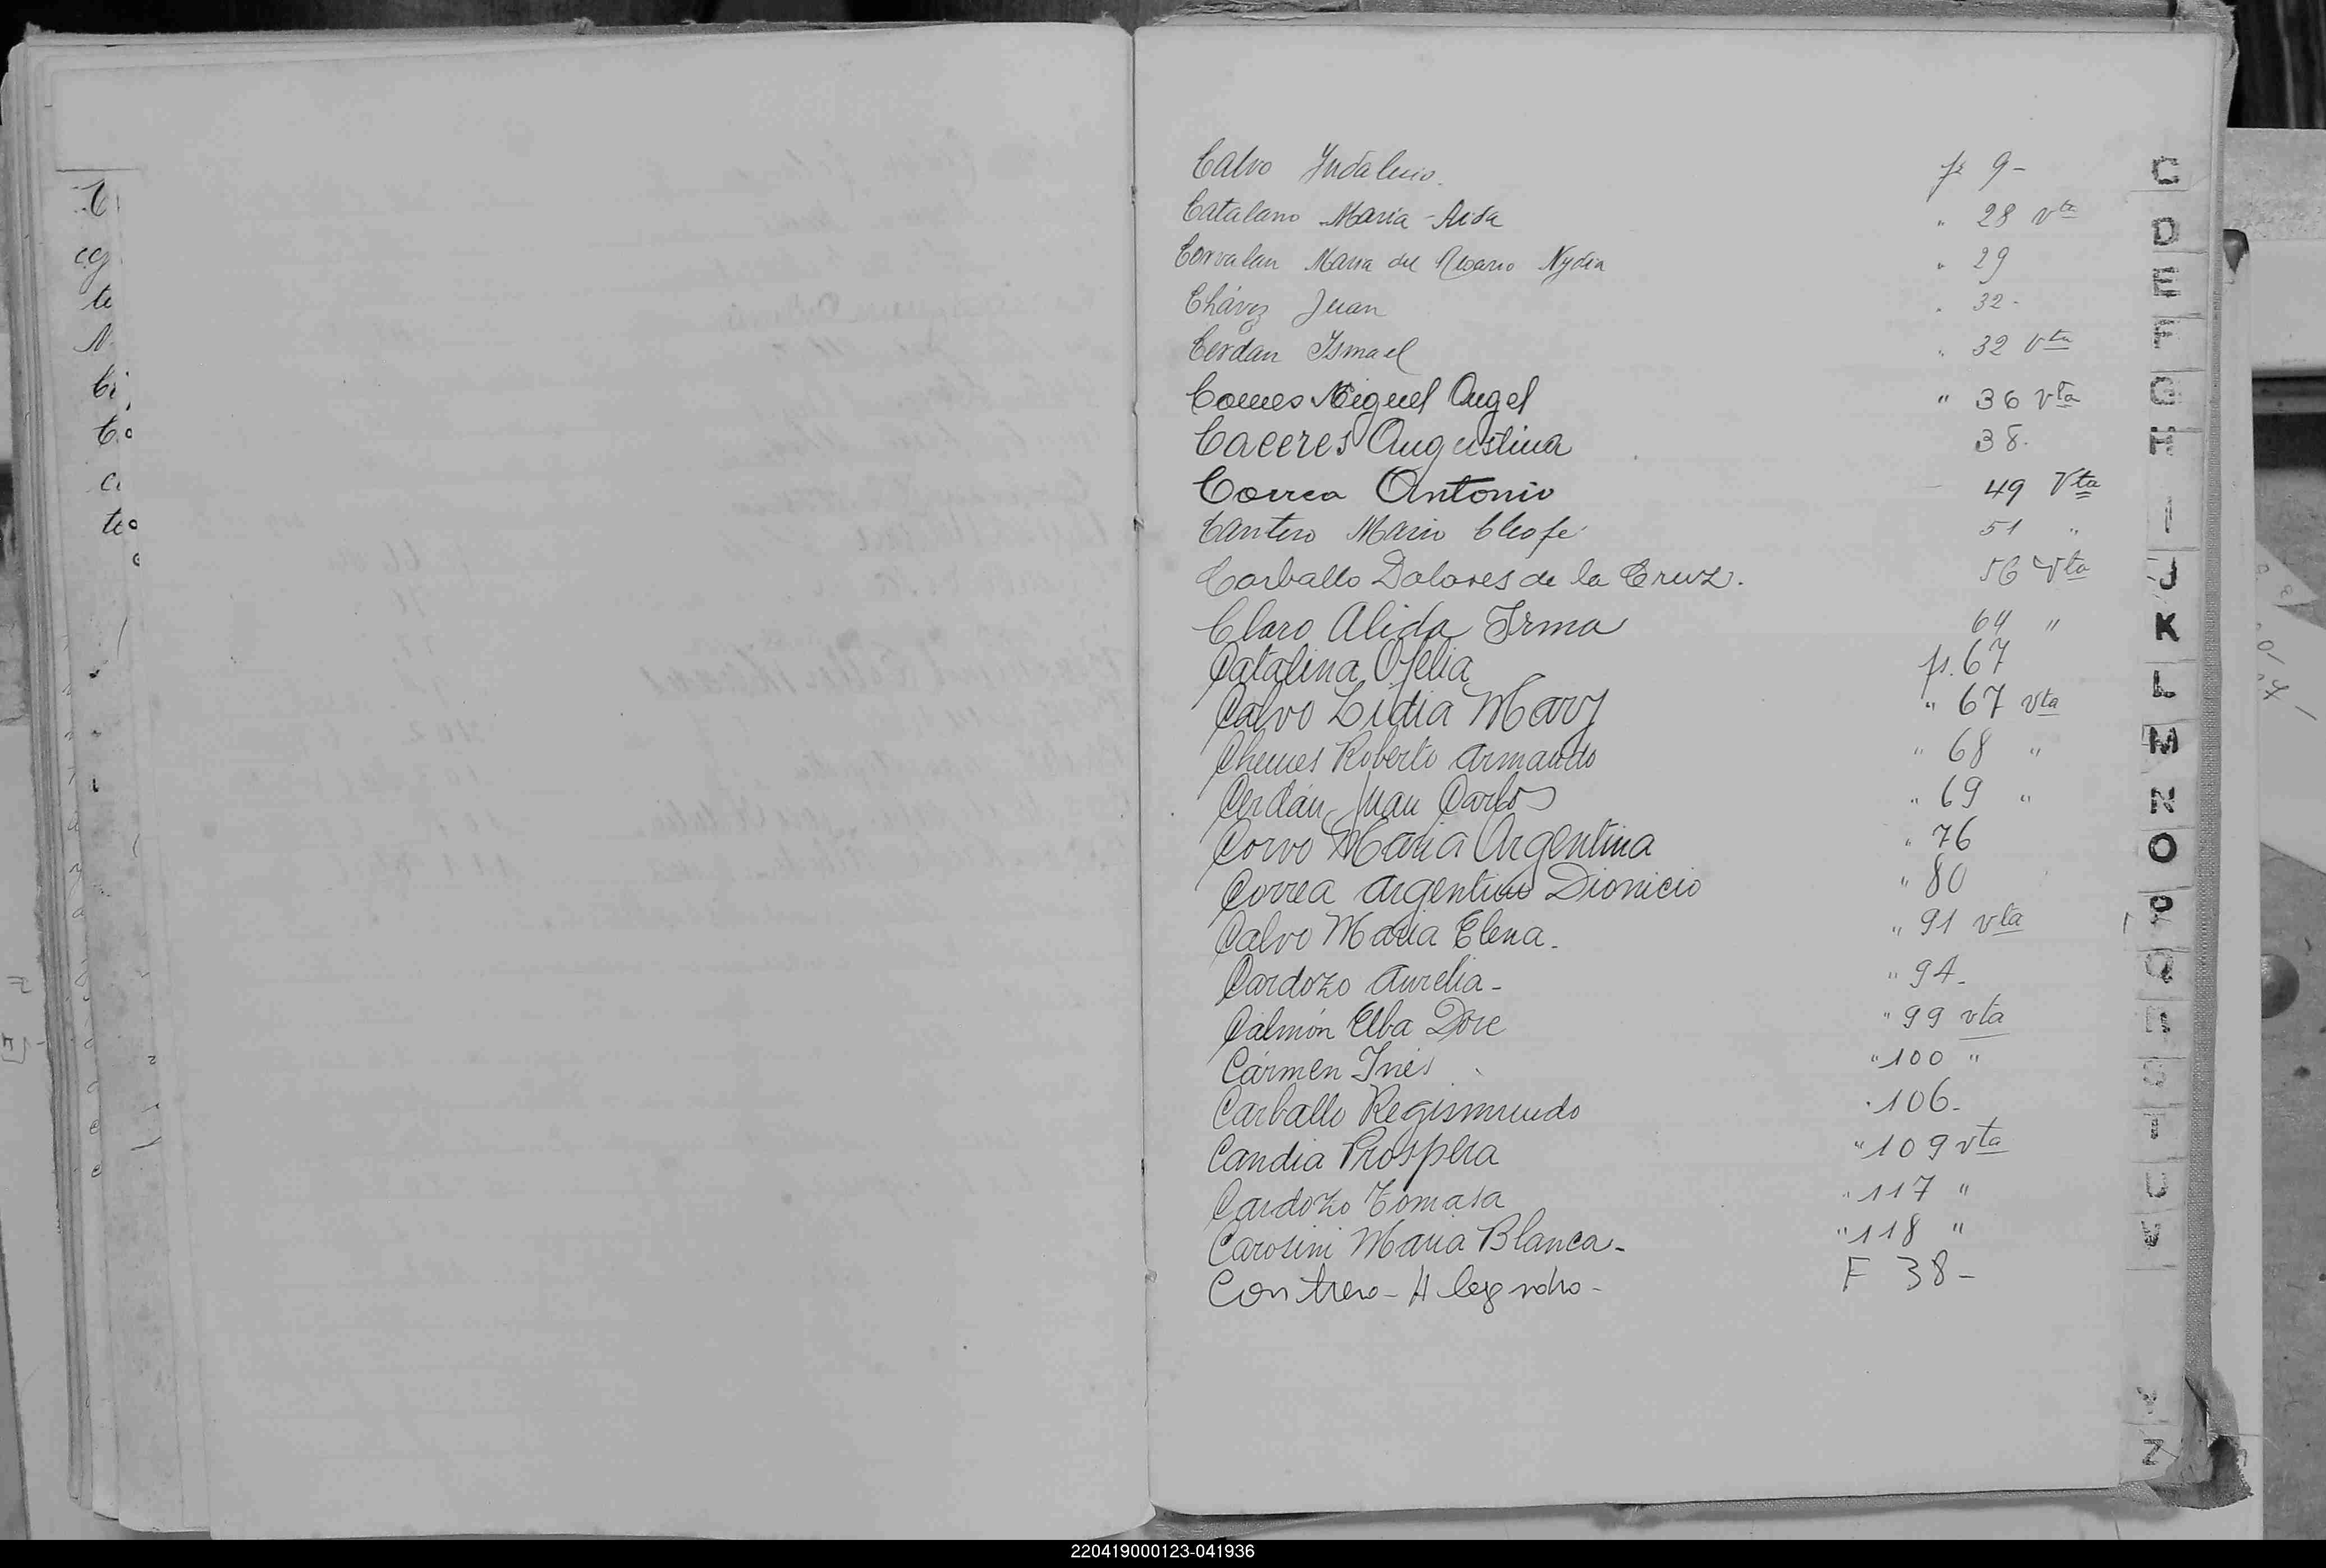 Calvo Yndalecio. fs 9-
Catalano Maria Aida " 28 vta
Corvalan Maria del Rosario Nydia " 29
Chávez Juan " 32-
Cerdan Ismael " 32 vta
Comes Miguel Angel " 36 vta
Caceres Augustina 38.
Correa Antonio 49 Vta
Cantero Mario Cleofe 51 "
Carballo Dolores de la Cruz. 56 Vta
Claro Alida Irma 64 "
Catalina Ofelia fs. 67
Calvo Lidia Mary " 67 vta
Chemes Roberto Armando " 68 "
Cerdán Juan Carlos " 69 "
Corvo Maria Argentina " 76
Correa Argentino Dionicio " 80
Calvo Maria Elena- " 91 vta
Cardozo Aurelia- " 94-
Calmón Elba Dore " 99 vta
Cármen Inés " 100 "
Carballo Regismundo " 106-
Candia Prospera " 109 vta
Cardozo Tomasa " 117 "
Carosini Maria Blanca- " 118 "
Contrero- Alegandro- F 38-
C
D
E
F
G
H
I
J
K
L
M
N
O
P
Q
R
S
T
U
V
Y
Z
220419000123-041936